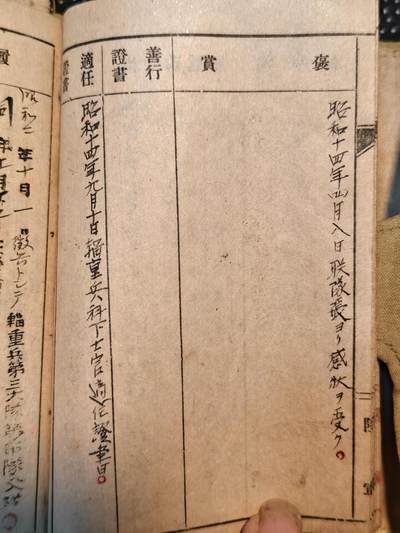 褒賞
昭和十四年四月八日聯隊長ヨリ感狀ヲ受ク
善行證書
適任證書
昭和十四年九月十日輜重兵科下士官適任證書
履
年十月一
徴兵トシテ輜重兵第三大隊